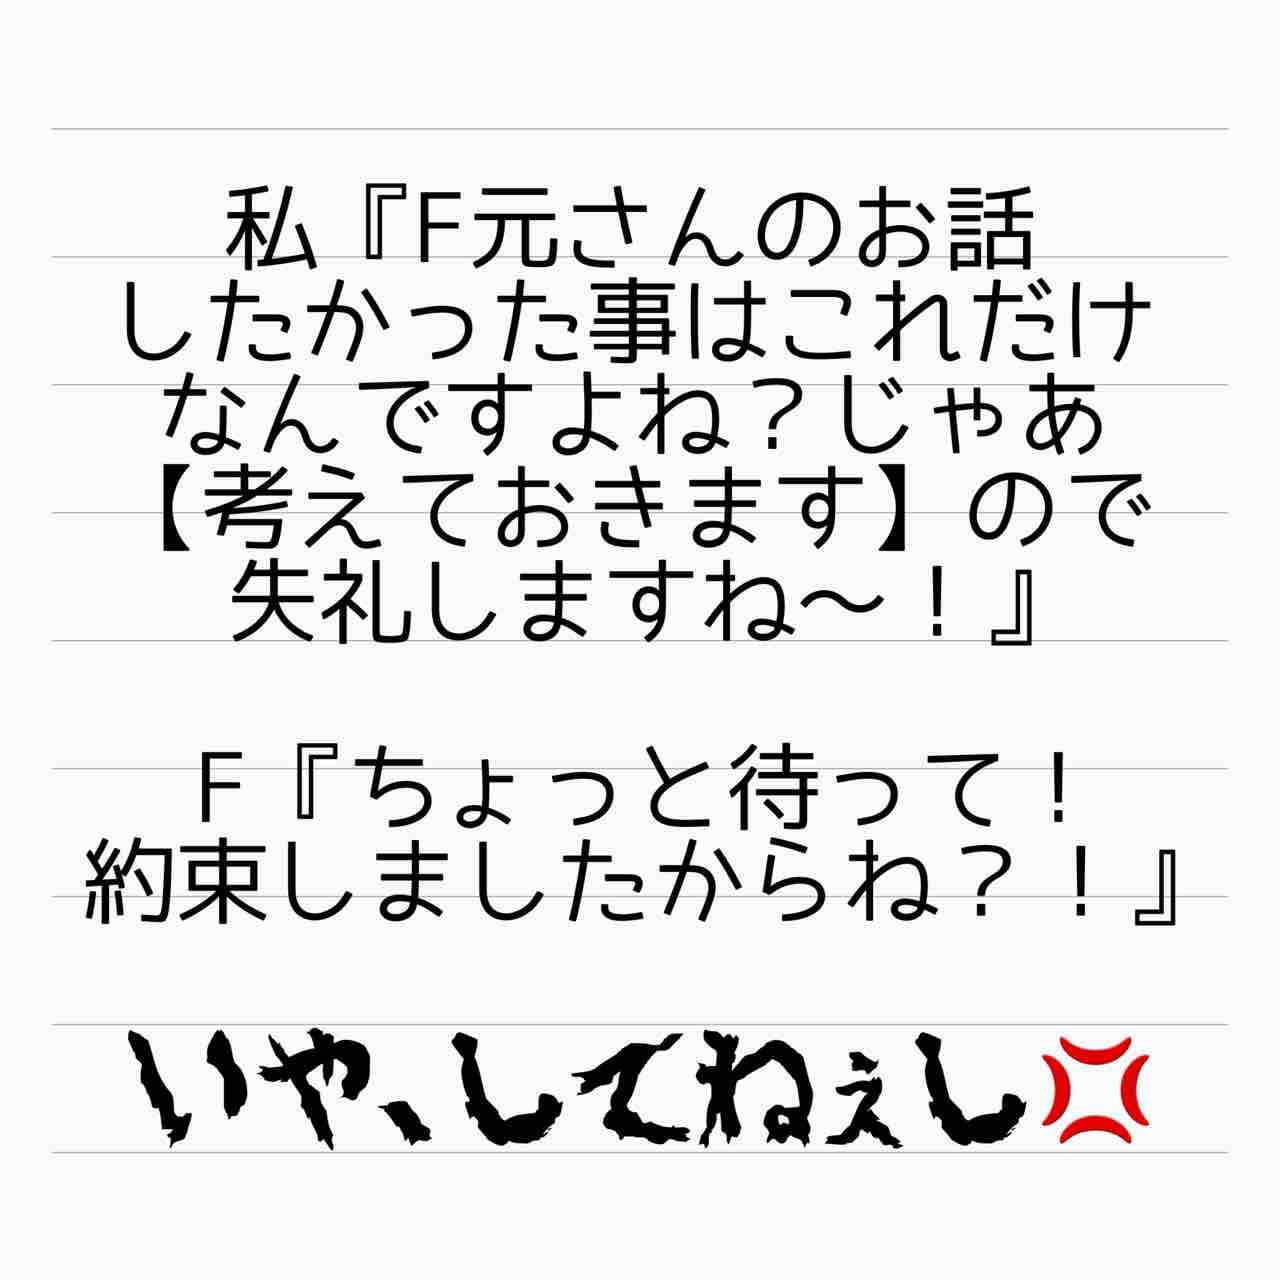 私『F元さんのお話
したかった事はこれだけ
なんですよね？じゃあ
【考えておきます】ので
失礼しますね〜！』
F『ちょっと待って！
約束しましたからね？！』
いや、してねぇし💢